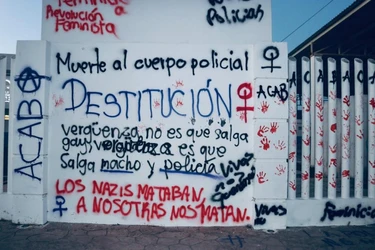 feminicida a
Revolución
Feminista
Policias
Muerte al cuerpo policial
DESTITUCIÓN
ACAB
ACAB
ACAB
vergüenza no es que salga
gay, vergüenza es que
salga macho y policía
Vivas
nos
LOS NAZIS MATABAN,
A NOSOTRAS NOS MATAN.
Vivas
Feminicid